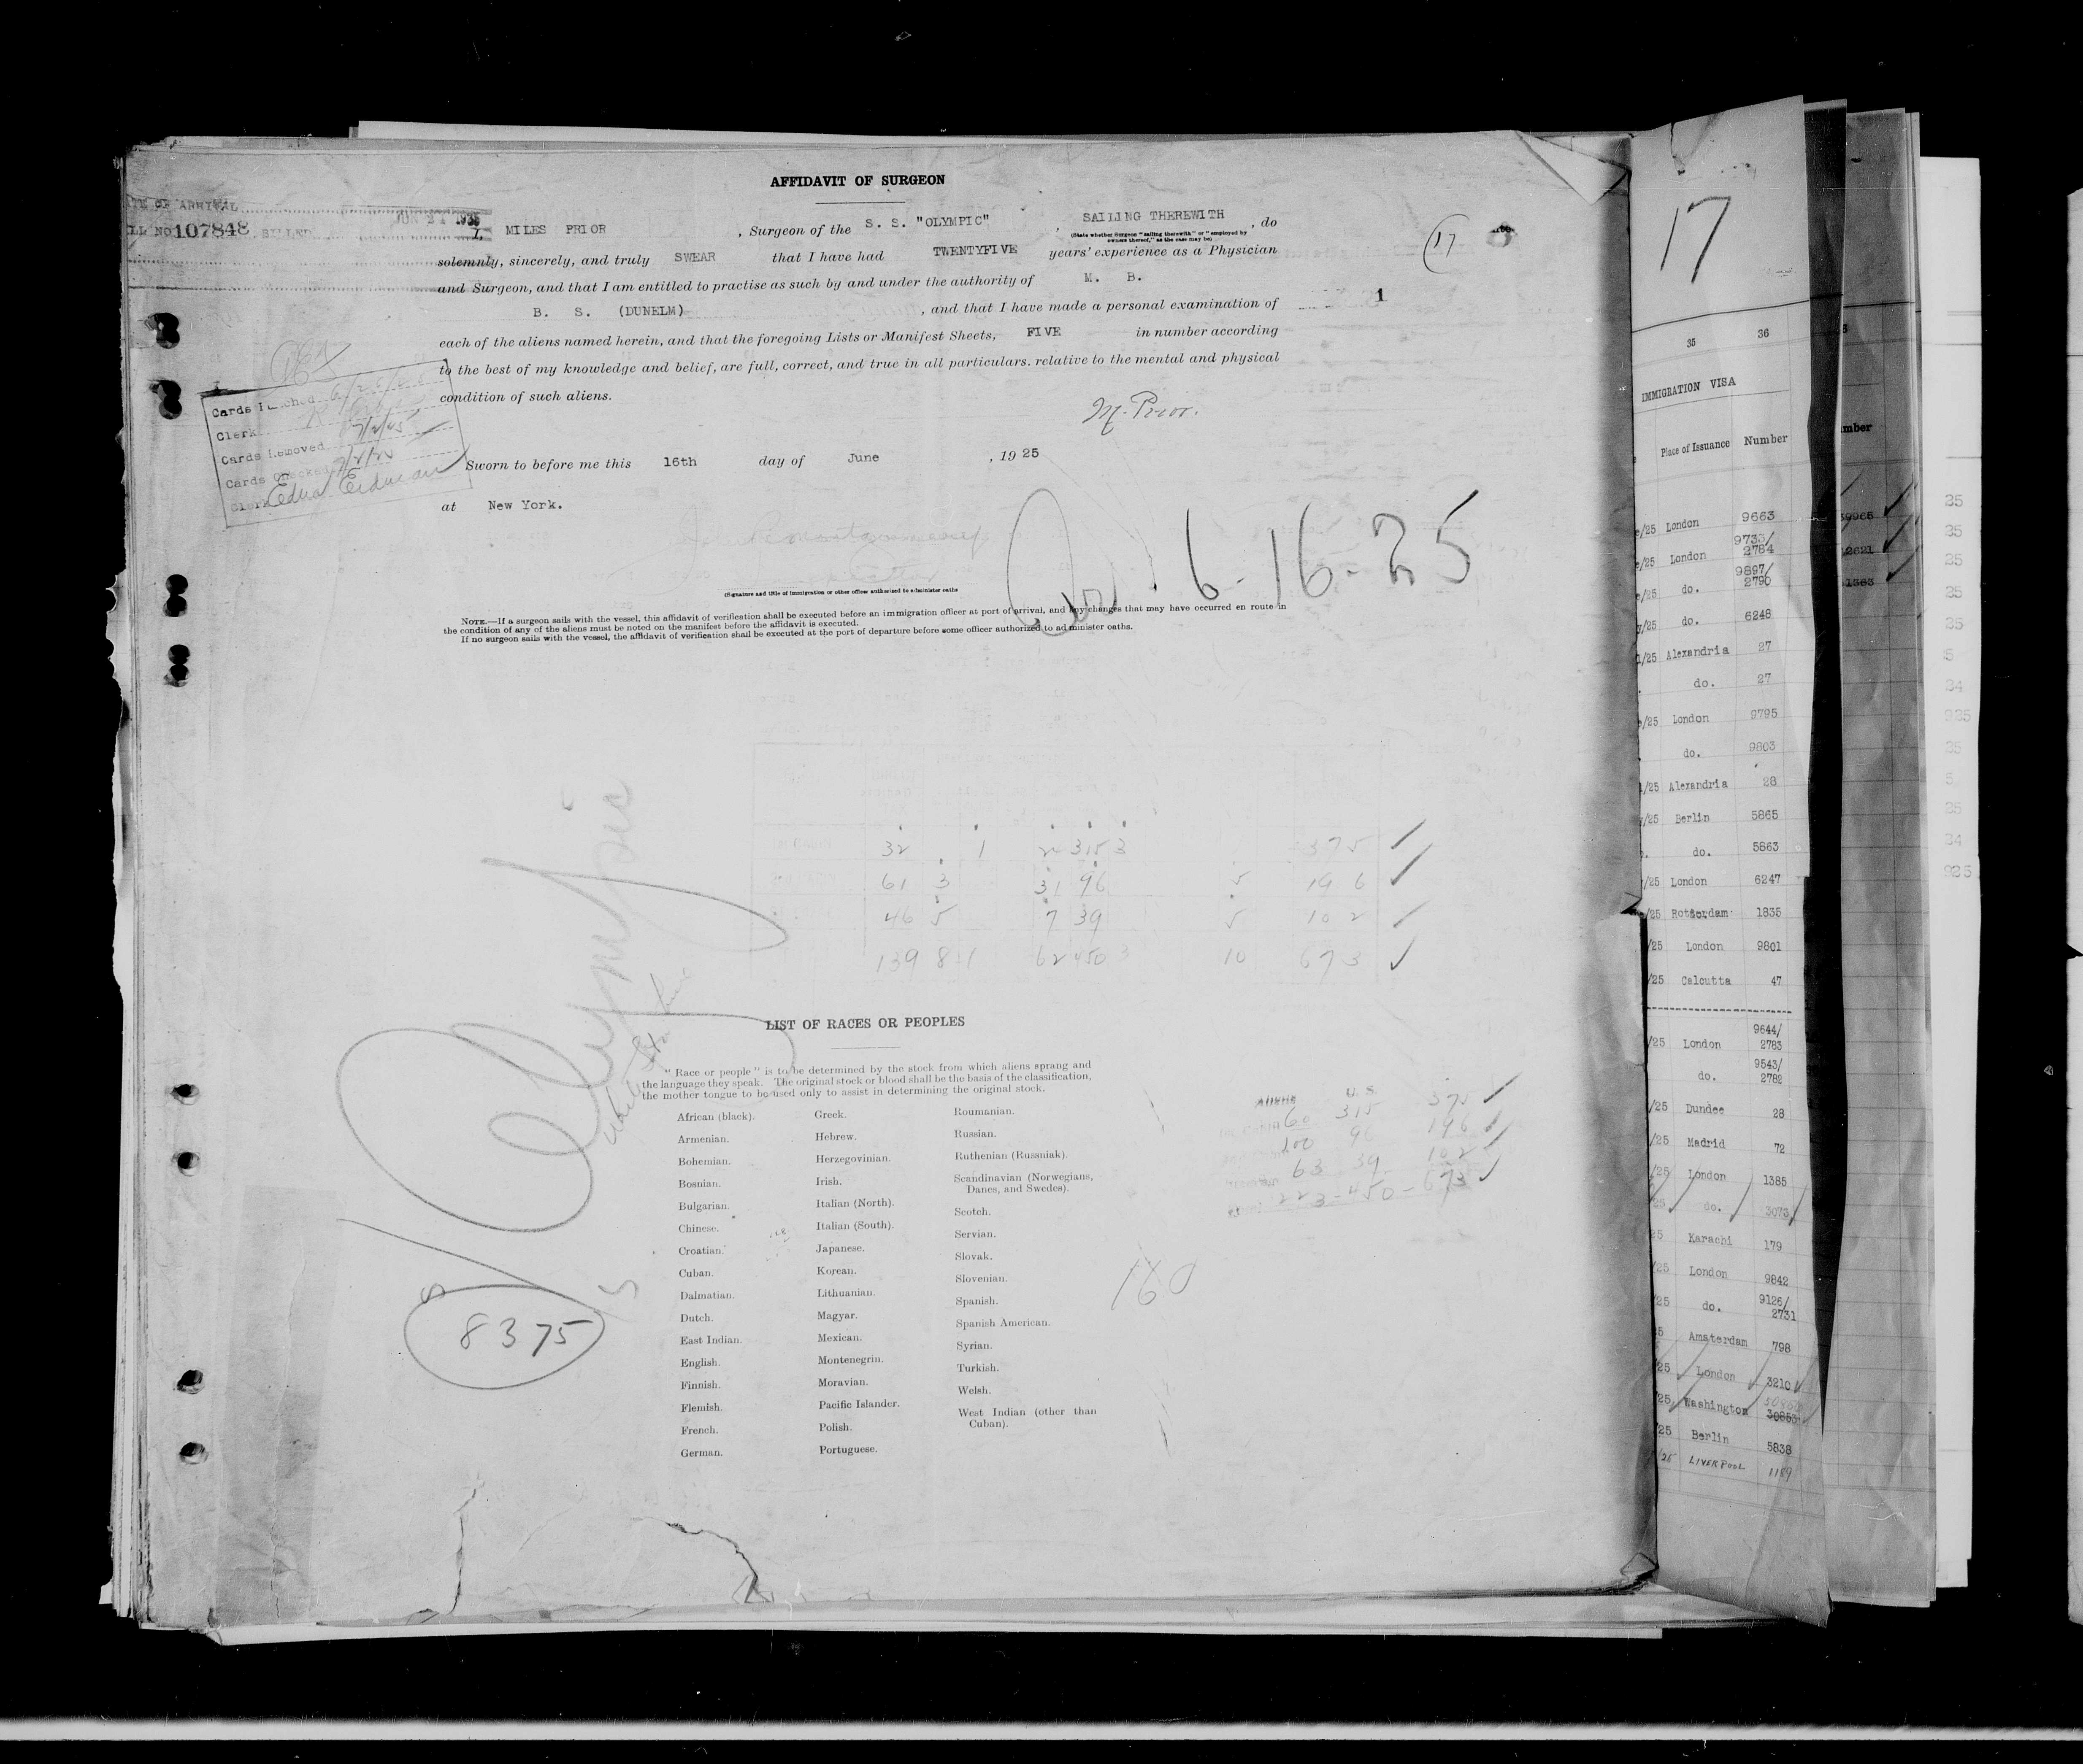 AFFIDAVIT OF SURGEON
OF ARRIVAL
JUN 1925
LL NO 107848 BILLED
I, MILES PRIOR , Surgeon of the S. S. "OLYMPIC" , SAILING THEREWITH , do
(State whether Surgeon "sailing therewith" or "employed by
owners thereof," as the case may be)
solemnly, sincerely, and truly SWEAR that I have had TWENTYFIVE years' experience as a Physician
and Surgeon, and that I am entitled to practise as such by and under the authority of M. B.
B. S. (DUNELM) , and that I have made a personal examination of
each of the aliens named herein, and that the foregoing Lists or Manifest Sheets, FIVE in number according
to the best of my knowledge and belief, are full, correct, and true in all particulars. relative to the mental and physical
condition of such aliens.
M. Prior.
17
1
Cards Punched
Clerk
Cards Removed
Cards Checked
Clerk Edna
Sworn to before me this 16th day of June , 19 25
at New York.
6-16-25
(Signature and title of immigration or other officer authorized to administer oaths
NOTE.—If a surgeon sails with the vessel, this affidavit of verification shall be executed before an immigration officer at port of arrival, and any changes that may have occurred en route in
the condition of any of the aliens must be noted on the manifest before the affidavit is executed.
If no surgeon sails with the vessel, the affidavit of verification shall be executed at the port of departure before some officer authorized to administer oaths.
32 1 2 315 3 375
61 3 31 96 5 196
46 5 7 39 5 102
139 8 1 62 450 3 10 673
Olympic
8375
LIST OF RACES OR PEOPLES
"Race or people" is to be determined by the stock from which aliens sprang and
the language they speak. The original stock or blood shall be the basis of the classification,
the mother tongue to be used only to assist in determining the original stock.
African (black).
Armenian.
Bohemian.
Bosnian.
Bulgarian.
Chinese.
Croatian.
Cuban.
Dalmatian.
Dutch.
East Indian.
English.
Finnish.
Flemish.
French.
German.
Greek.
Hebrew.
Herzegovinian.
Irish.
Italian (North).
Italian (South).
Japanese.
Korean.
Lithuanian.
Magyar.
Mexican.
Montenegrin.
Moravian.
Pacific Islander.
Polish.
Portuguese.
Roumanian.
Russian.
Ruthenian (Russniak).
Scandinavian (Norwegians,
Danes, and Swedes).
Scotch.
Servian.
Slovak.
Slovenian.
Spanish.
Spanish American.
Syrian.
Turkish.
Welsh.
West Indian (other than
Cuban).
Aliens U. S.
60 315 375
100 96 196
63 39 102
223-450-673
160
17
35 36
IMMIGRATION VISA
Place of Issuance Number
/25 London 9663
/25 London 9733/
2784
/25 do. 9897/
2790
/25 do. 6248
/25 Alexandria 27
do. 27
/25 London 9795
do. 9803
/25 Alexandria 28
/25 Berlin 5865
do. 5863
/25 London 6247
/25 Rotterdam 1835
/25 London 9801
/25 Calcutta 47
/25 London 9644/
2783
do. 9543/
2782
/25 Dundee 28
/25 Madrid 72
/25 London 1385
25 do. 3073
25 Karachi 179
/25 London 9842
/25 do. 9126/
2731
5 Amsterdam 798
25 London 3210
25 Washington
25 Berlin 5838
/25 LIVERPOOL 1189
mber